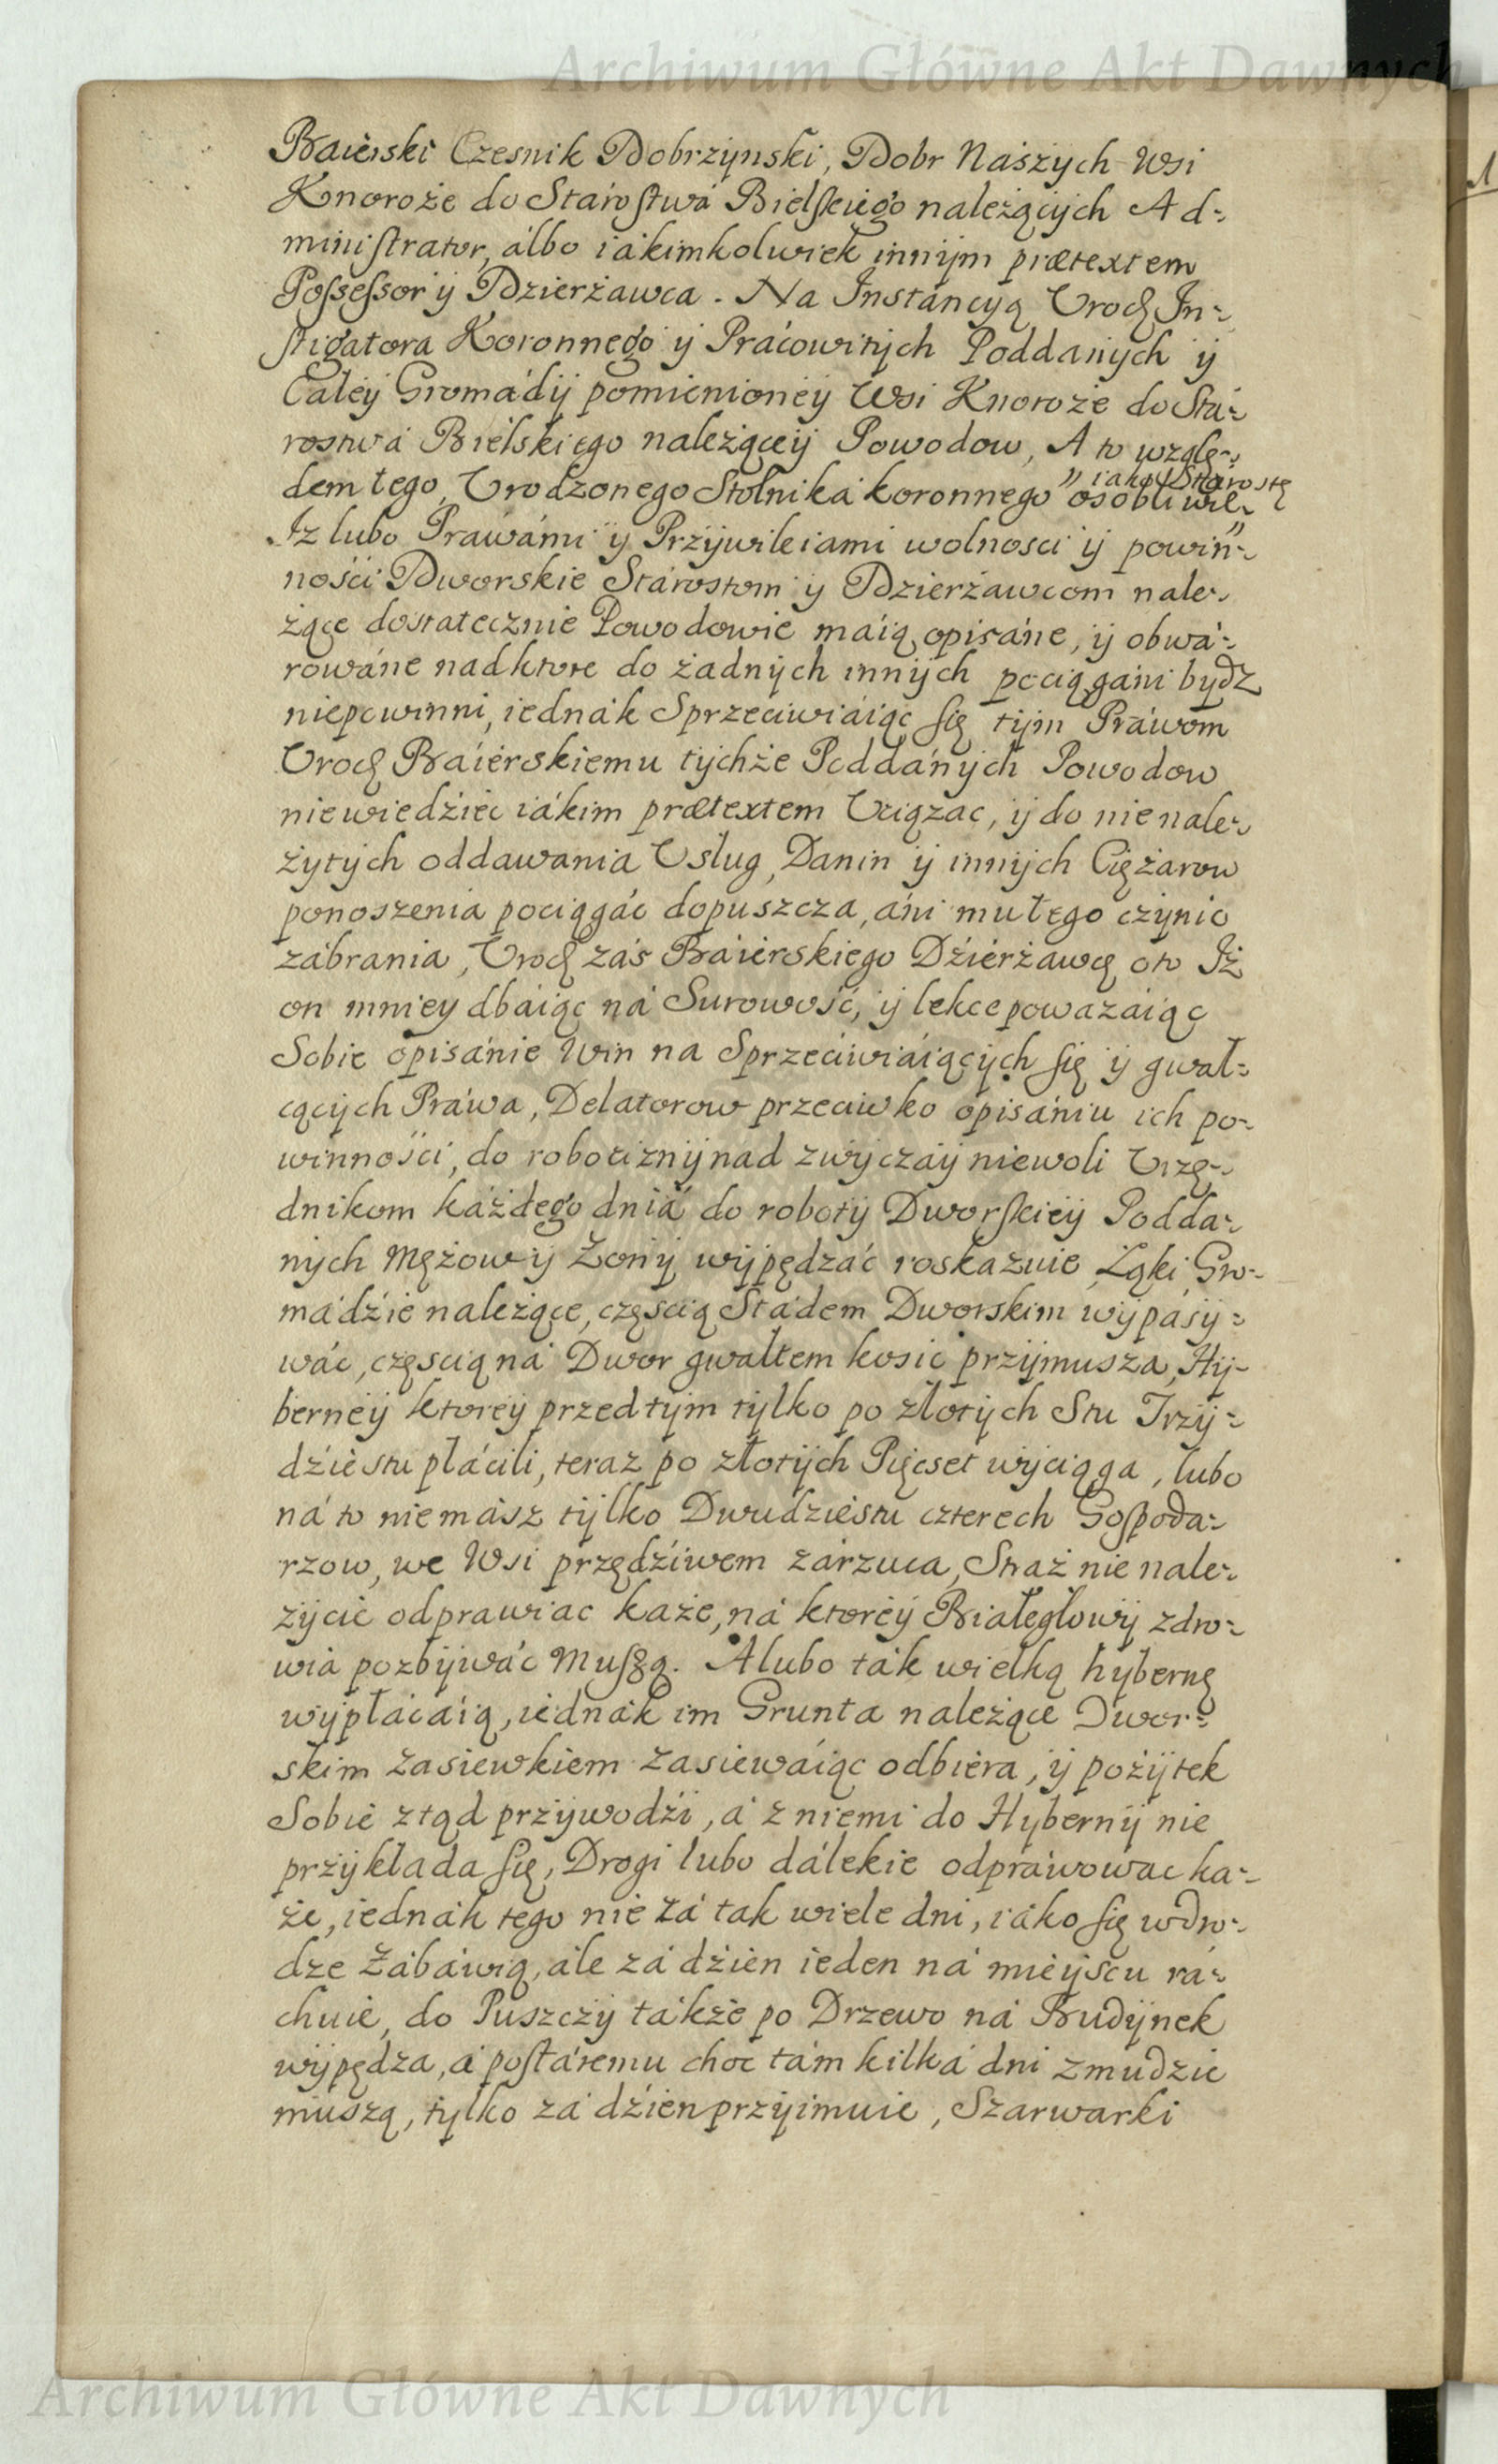 Archiwum Główne Akt Dawnych
Baierski Czesnik Dobrzynski, Dobr Naszych Wsi
Knoroże do Starostwá Bielskiego należących Ad-
ministrator, álbo iákimkolwiek innym prætextem
Possessor y Dzierżawca. Na Instáncyą Urodz In-
stigatora Koronnego y Prácowitych Poddanych y
Całey Gromády pomienioney Wsi Knoroże do Stá-
rostwá Bielskiego należącey Powodow, A to wzglę-
dem tego, Urodzonego Stolnika koronnego " iáko Stárostę
osobliwie "
Iz lubo Práwámi y Przywileiami wolnosci y powin-
ności Dworskie Stárostom y Dzierżawcom nale-
żące dostatecznie Powodowie máią opisáne, y obwá-
rowáne nad ktore do żadnych innych pociągáni bydz
niepowinni, iednák Sprzeciwiáiąc się tym Práwom
Urodz Baierskiemu tychże Poddánych Powodow
niewiedziec iákim prætextem Uciązac, y do nienale-
żytych oddawania Usług, Danin y innych Ciężarow
ponoszenia pociągác dopuszcza, áni mu tego czynic
zábrania, Urodz záś Baierskiego Dzierżawcę oto Iż
on mniey dbáiąc ná Surowość, y lekce poważáiąc
Sobie opisánie Win na Sprzeciwiáiących się y gwał-
cących Práwa, Delatorow przeciwko opisániu ich po-
winności, do robocizny nad zwyczáy niewoli Urzę-
dnikom káżdego dniá do roboty Dworskiey Poddá-
nych Mężow y Żony wypędzác roskazuie, Łąki Gro-
mádzie należące, częscią Stádem Dworskim wypásy-
wác, częscią ná Dwor gwałtem kosic przymusza, Hy-
berney ktorey przedtym tylko po złotych Stu Trzy-
dziestu płácili, teraz po złotych Pięcset wyciąga, lubo
ná to niemász tylko Dwudziestu czterech Gospoda-
rzow, we Wsi przędziwem zárzuca, Straż nienale-
życie odprawiac każe, ná ktorey Białegłowy zdro-
wia pozbywác Muszą. A lubo ták wielką hybernę
wypłácáią, iednák im Grunta należące Dwor-
skim zasiewkiem zasiewáiąc odbiera, y pożytek
Sobie ztąd przywodzi, á z niemi do Hyberny nie
przykłada się, Drogi lubo dálekie odpráwowac ka-
że, iednák tego nie zá tak wiele dni, iáko się w dro-
dze zábáwią, ále zá dzien ieden ná mieyscu rá-
chuie, do Puszczy tákże po Drzewo ná Budynek
wypędza, á postáremu choc tám kilká dni zmudzic
muszą, tylko zá dzien przyimuie, Szarwarki
Archiwum Główne Akt Dawnych